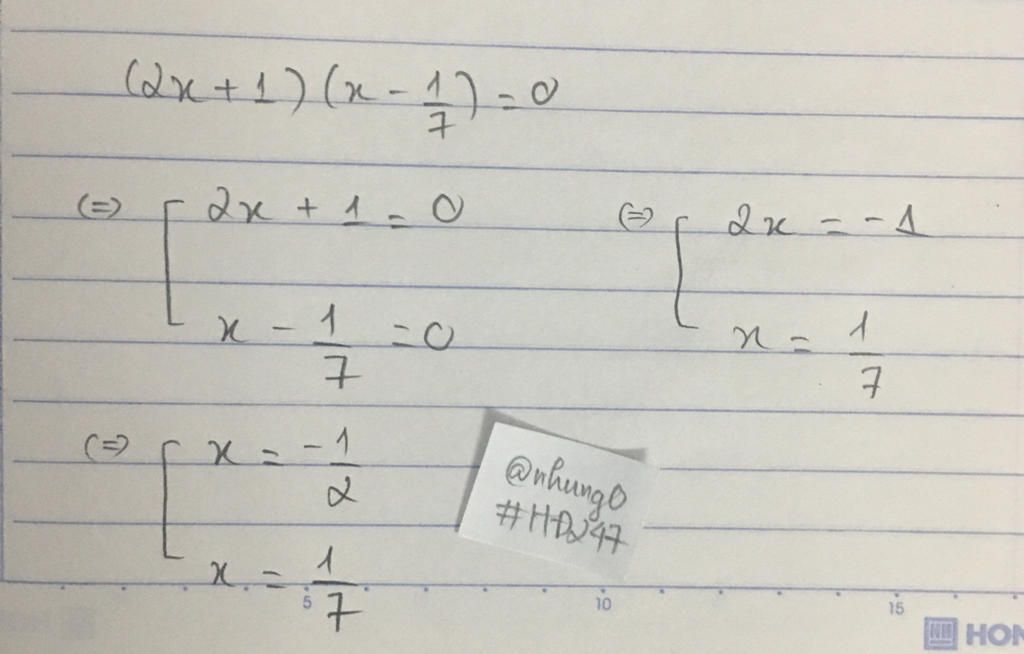 (2x + 1)(x - 1/7) = 0
(=) [ 2x + 1 = 0
x - 1/7 = 0
(=) [ 2x = -1
x = 1/7
(=) [ x = -1/2
x = 1/7
@nhung0
#HD247
5 10 15
HON